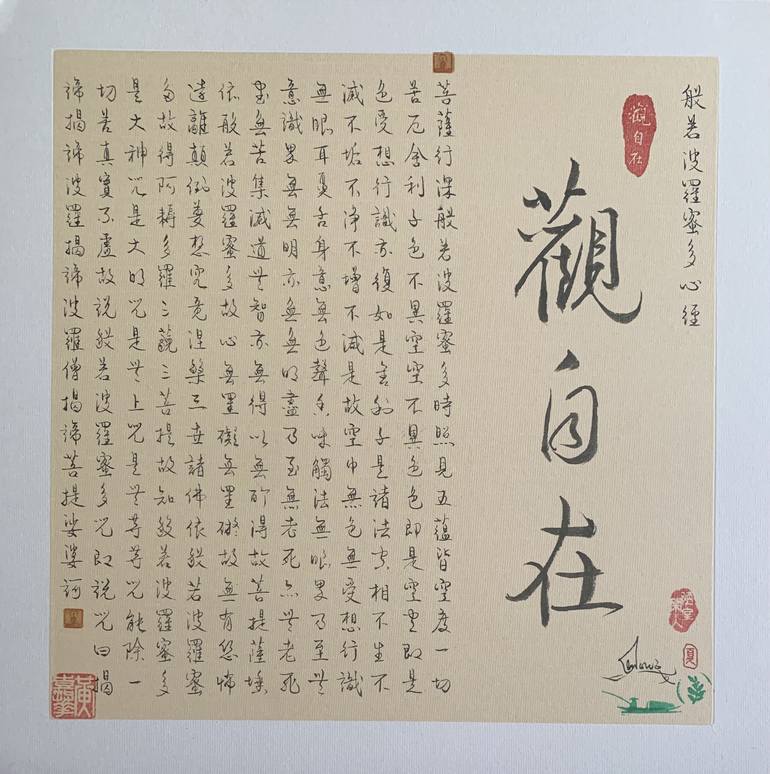 般若波羅蜜多心經
觀自在
觀自在
菩薩行深般若波羅蜜多時照見五蘊皆空度一切
苦厄舍利子色不異空空不異色色即是空空即是
色受想行識亦復如是舍利子是諸法空相不生不
滅不垢不淨不增不減是故空中無色無受想行識
無眼耳鼻舌身意無色聲香味觸法無眼界乃至無
意識界無無明亦無無明盡乃至無老死亦無老死
盡無苦集滅道無智亦無得以無所得故菩提薩埵
依般若波羅蜜多故心無罣礙無罣礙故無有恐怖
遠離顛倒夢想究竟涅槃三世諸佛依般若波羅蜜
多故得阿耨多羅三藐三菩提故知般若波羅蜜多
是大神咒是大明咒是無上咒是無等等咒能除一
切苦真實不虛故說般若波羅蜜多咒即說咒曰揭
諦揭諦波羅揭諦波羅僧揭諦菩提娑婆訶
夏